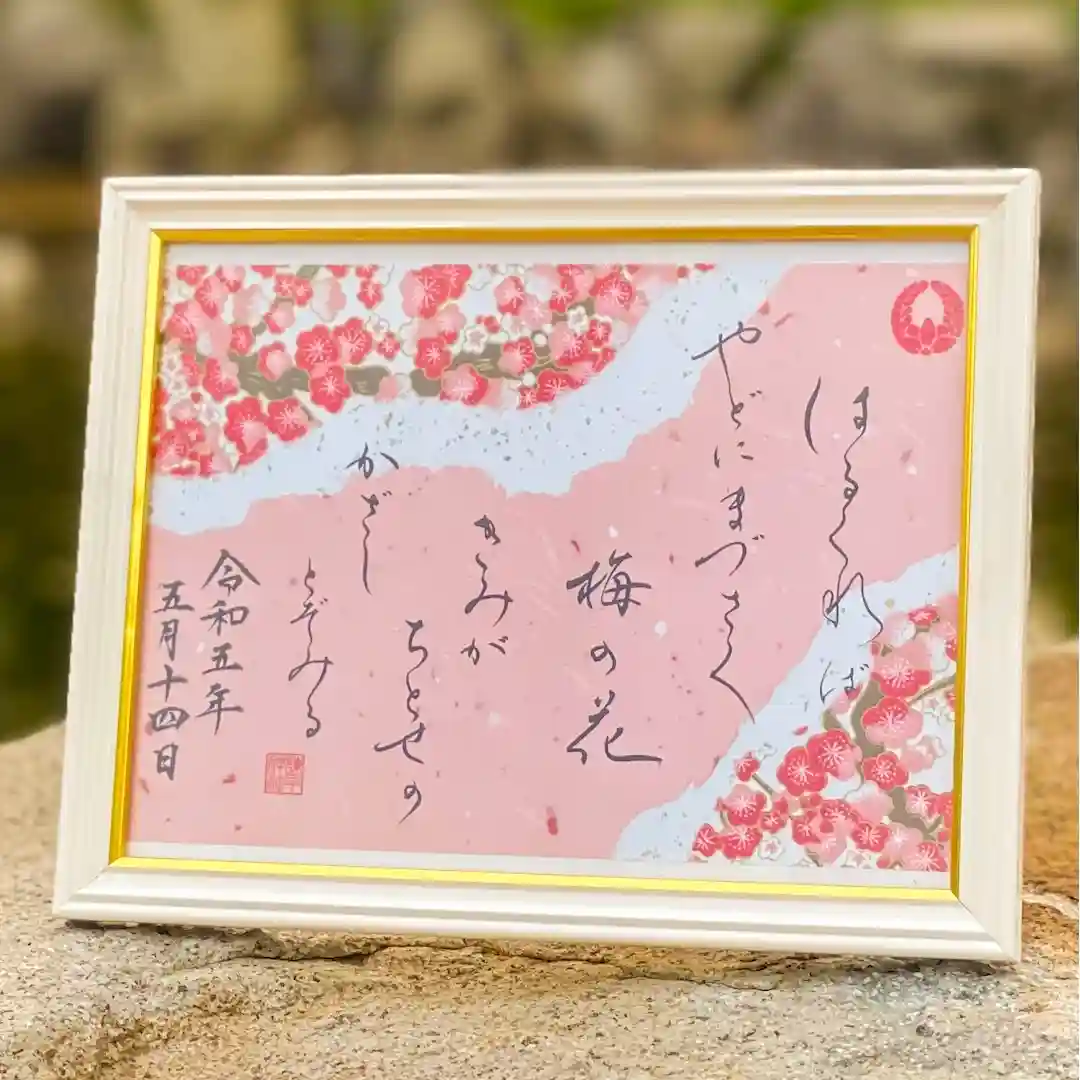 はるくれば
やどにまづさく
梅の花
きみが
ちとせの
かざし
とぞみる
令和五年
五月十四日